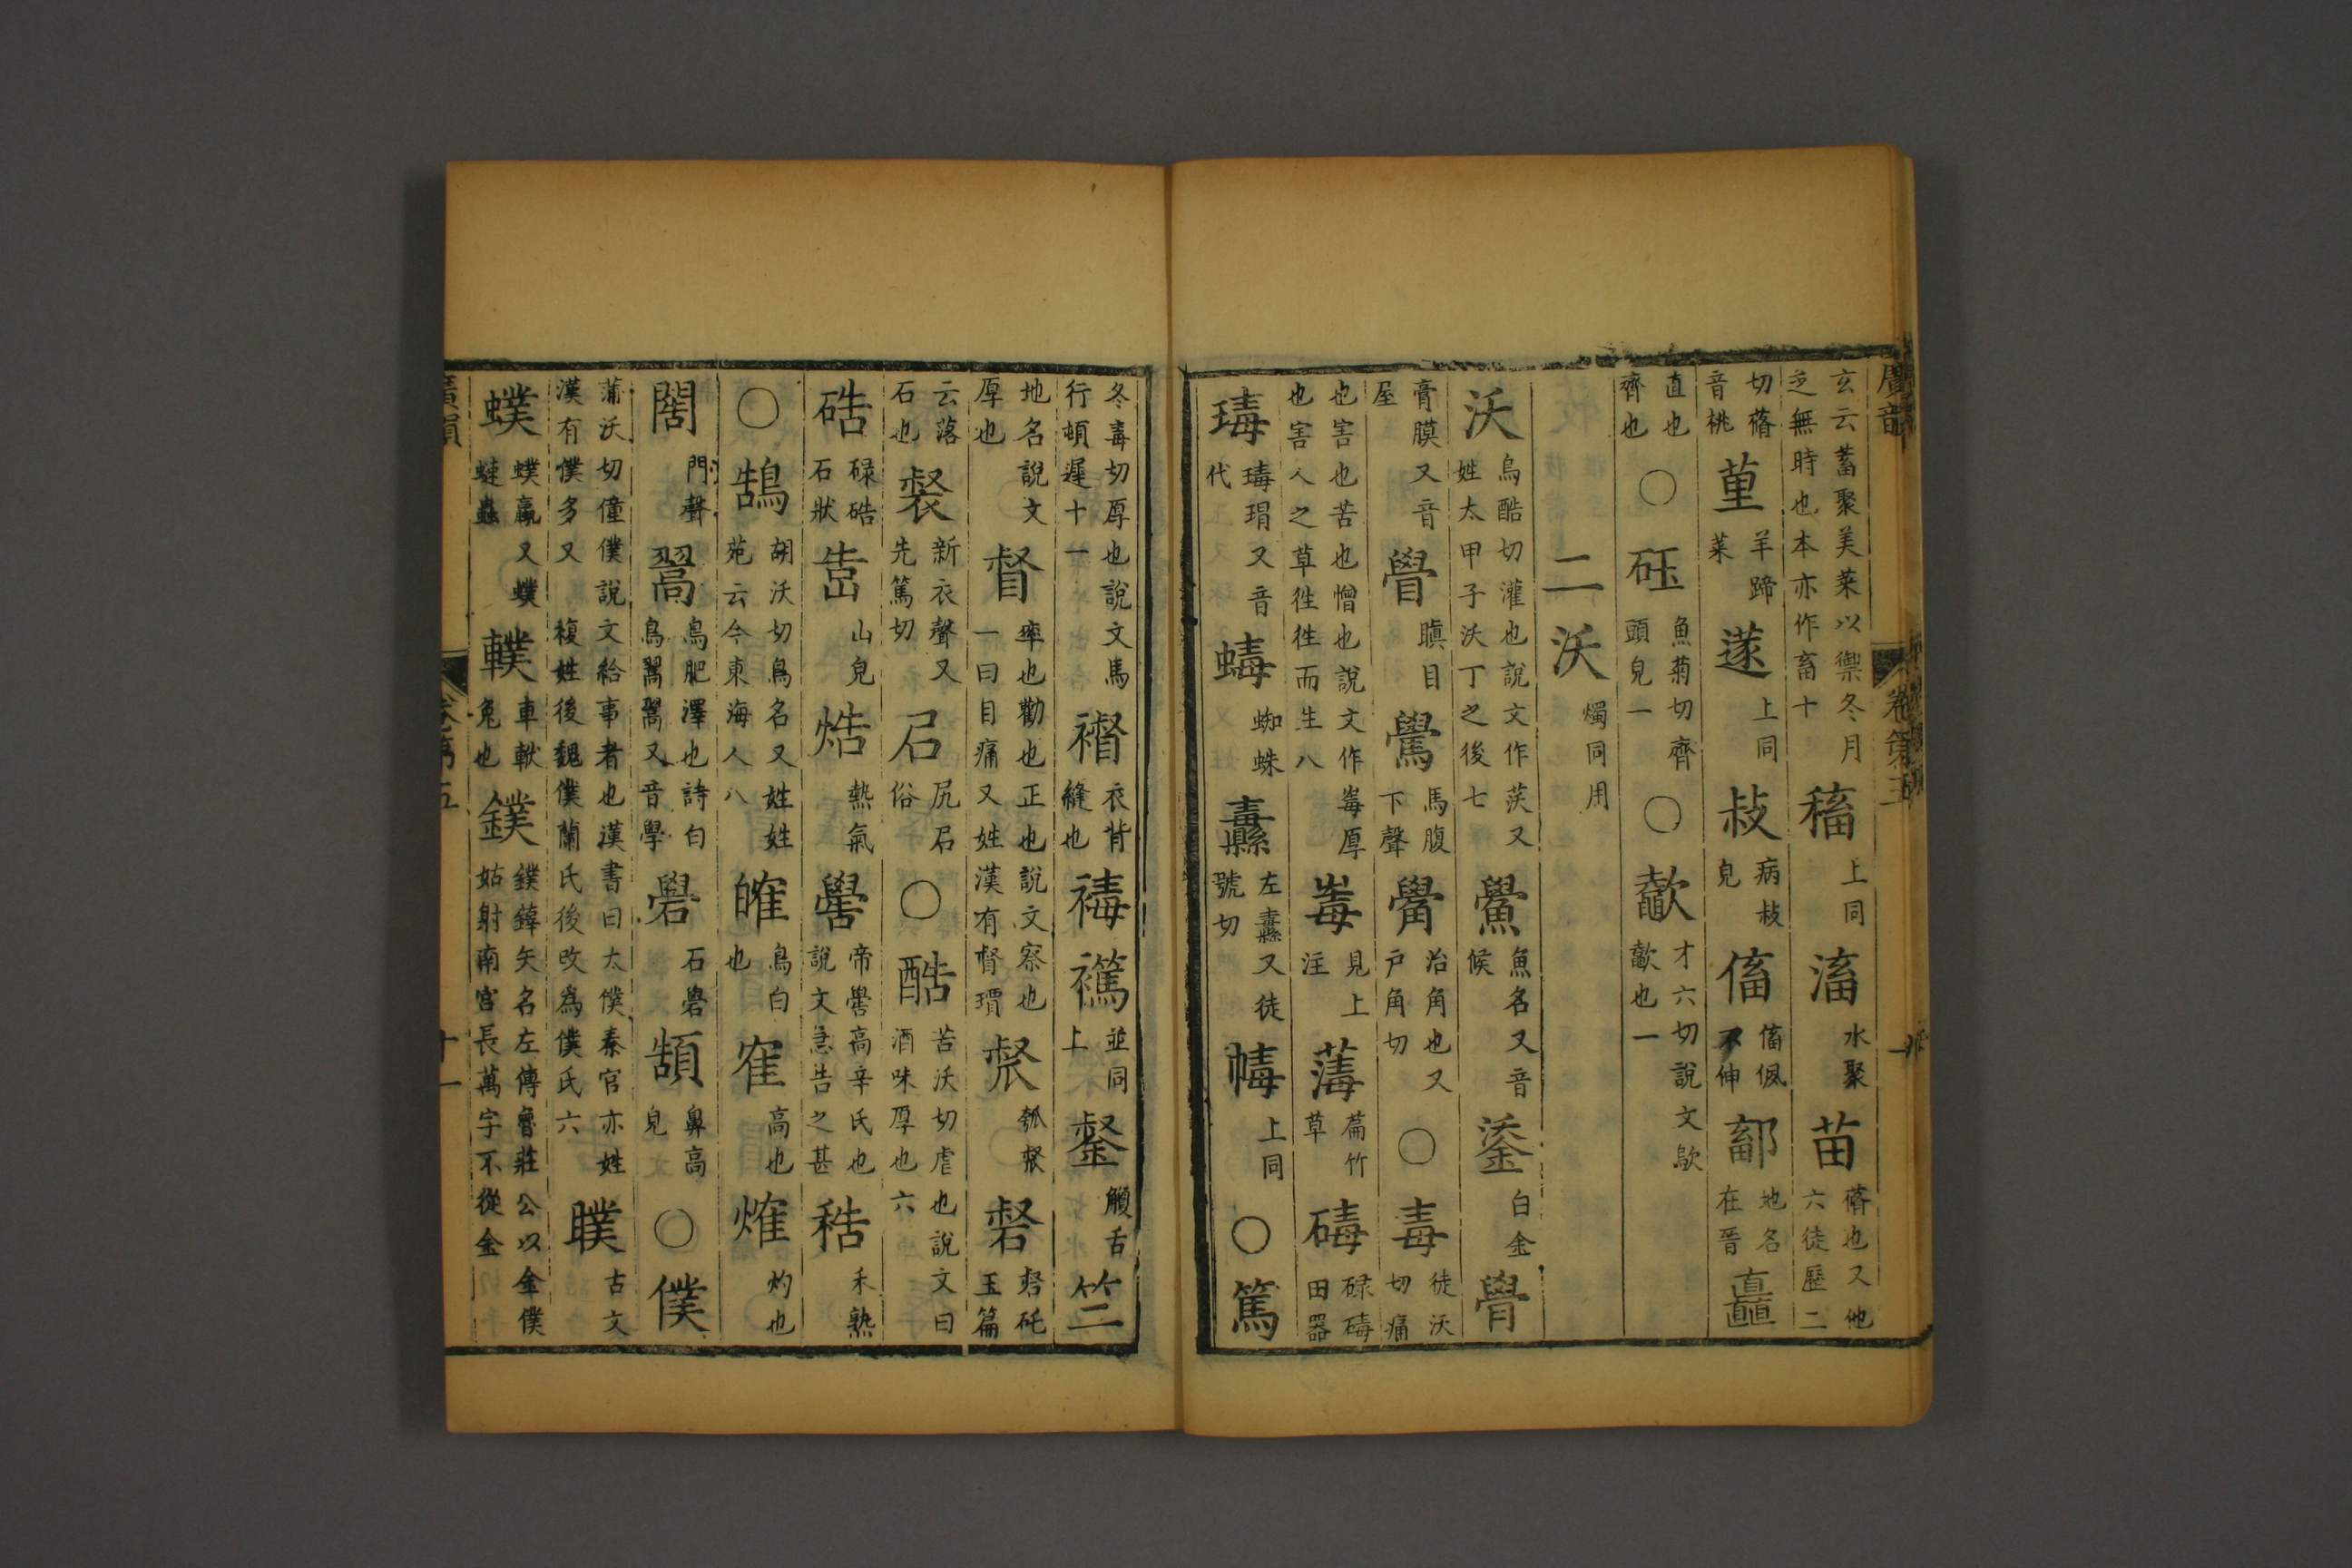 玄云蓄聚美菜以禦冬月
乏無時也本亦作畜十
稸
上同
滀
水聚
苗
蓨也又他
六徒歷二
切蓨
音桃
菫
羊蹄
菜
蓫
上同
㱽
病㱽
皃
傗
傗㑉
不伸
鄐
地名
在晉
矗
直也
齊也
○
砡
魚菊切齊
頭皃一
○
歜
才六切說文歍
歜也一
二
沃
燭同用
沃
烏酷切灌也說文作𣵽又
姓太甲子沃丁之後七
鱟
魚名又音
候
鋈
白金
膏膜又音
屋
瞋目
馬腹
下聲
治角也又
户角切
○
毒
徒沃
切痛
也害也苦也憎也說文作𡴕厚
也害人之草往往而生八
𡴕
見上
注
薄
萹竹
草
碡
碌碡
田器
瑇
瑇瑁又音
代
蝳
蜘蛛
纛
左纛又徒
號切
𢂏
上同
○
篤
冬毒切厚也說文馬
行頓遲十一
襩
衣背
縫也
並同
上
觸舌
竺
地名說文
厚也
督
率也勸也正也說文察也
一曰目痛又姓漢有督瓚
裻
新衣聲又
先篤切
云落
石也
尻
俗
○
酷
苦沃切虐也說文曰
酒味厚也六
硞
碌硞
石狀
山皃
焅
熱氣
嚳
帝嚳高辛氏也
說文急告之甚
秸
禾熟
○
鵠
胡沃切鳥名又姓姓
苑云今東海人八
㿥
鳥白
也
隺
高也
熇
灼也
門聲
翯
鳥肥澤也詩白
鳥翯翯又音學
礐
石礐
頶
鼻高
皃
○
僕
蒲沃切僮僕說文給事者也漢書曰太僕秦官亦姓
漢有僕多又複姓後魏僕蘭氏後改為僕氏六
古文
蟔
蟔蠃又蟔
蜨蟲
轐
車軷
兔也
鏷
鏷錍矢名左傳魯莊公以金僕
姑射南宮長萬字不從金
廣韻
卷第五
十一